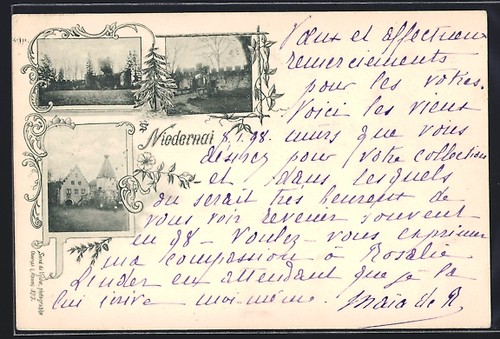 Vœux et affectueux
remerciements
pour les votres.
Voici les vieux
Niedernai 8.1.98. murs que vous
désirez pour votre collection
et dans lesquels
on serait très heureux de
vous voir revenir souvent
en 98 - Voulez-vous exprimer
ma compassion à Rosalie
Linder en attendant que je la
lui écrive moi-même. Maia de R